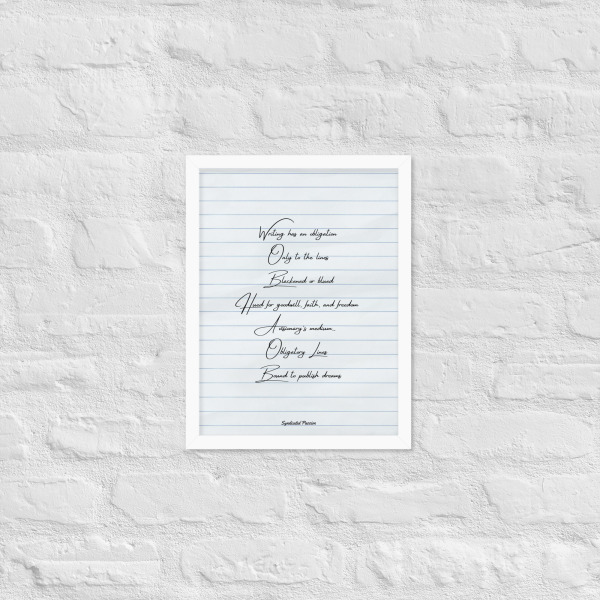 Writing has an obligation
Only to the lines
Blackened or blued
Hued for goodwill, faith, and freedom
A visionary's medium
Obligatory Lines
Bound to publish dreams
Syndicated Passion